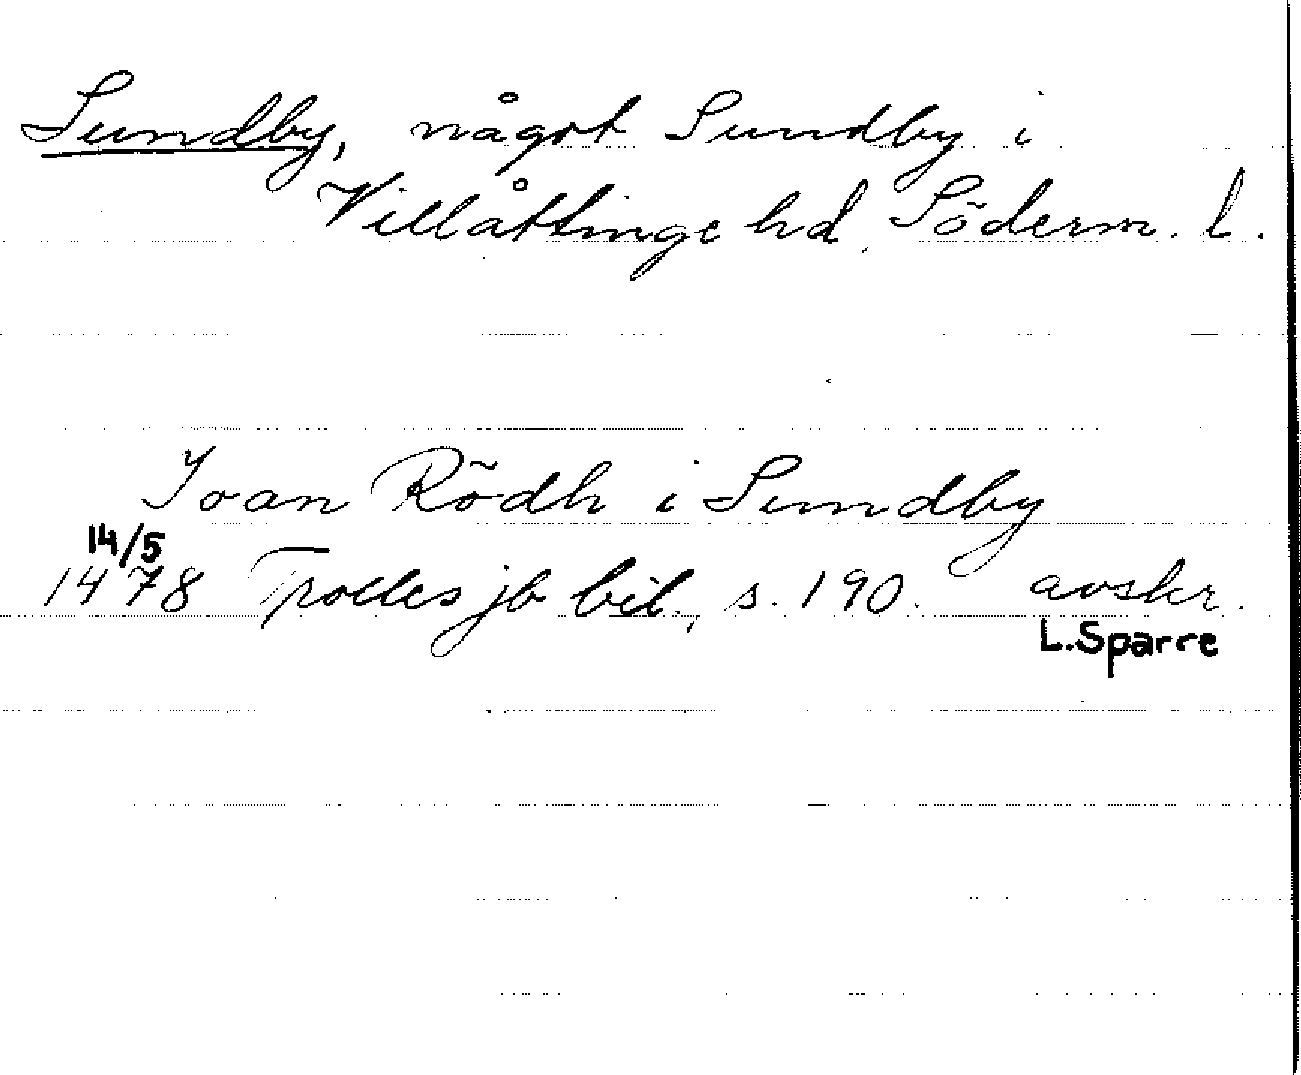 Sundby, något Sundby i
Villåttinge hd, Söderm. l.
Joan Rödh i Sundby
14/5
1478 Trolles jb bil., s. 190. avskr.
L. Sparre